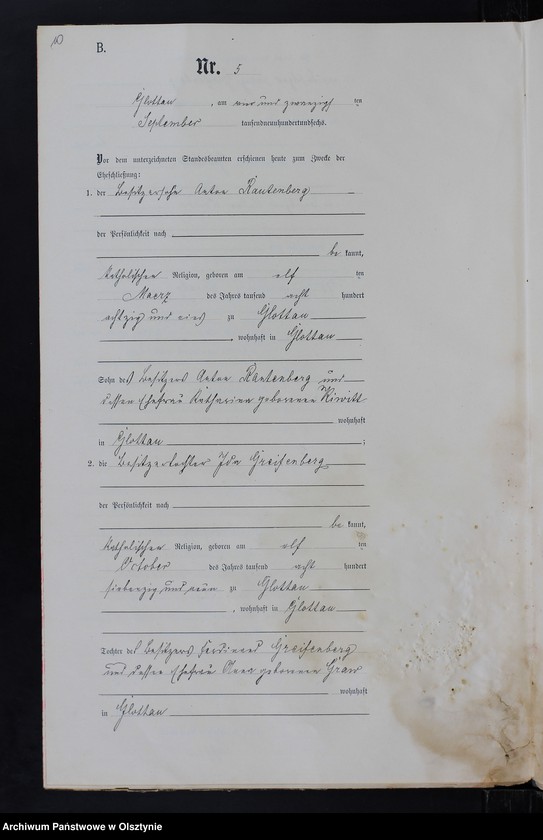 10
B.
Nr. 5
Glottau, am und zwanzigsten
September tausendneunhundertundsechs.
Vor dem unterzeichneten Standesbeamten erschienen heute zum Zwecke der
Eheschließung:
1. der Besitzersohn Anton Rautenberg
der Persönlichkeit nach
be kannt,
katholischer Religion, geboren am elf ten
Maerz des Jahres tausend acht hundert
achtzig und eins zu Glottau
, wohnhaft in Glottau
Sohn des Besitzers Anton Rautenberg und
dessen Ehefrau Katharina geborenen Kiwitt
wohnhaft
in Glottau ;
2. die Besitzertochter Ida Greifenberg
der Persönlichkeit nach
be kannt,
katholischer Religion, geboren am elf ten
October des Jahres tausend acht hundert
siebenzig und neun zu Glottau
, wohnhaft in Glottau
Tochter des Besitzers Ferdinand Greifenberg
und dessen Ehefrau Anna geborenen
wohnhaft
in Glottau
Archiwum Państwowe w Olsztynie